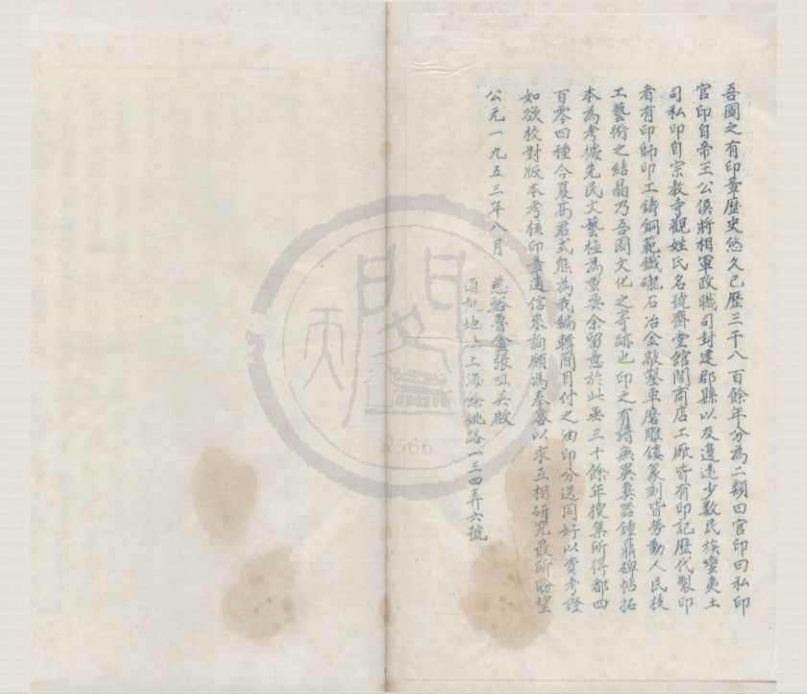 吾國之有印章歷史悠久已歷三千八百餘年分為二類曰官印曰私印
官印自帝王公侯將相軍政職司封建郡縣以及邊遠少數民族蠻夷土
司私印自宗教寺觀姓氏名號齋堂館閣商店工廠皆有印記歷代製印
者有印師印工鑄銅範鐵礲石冶金敲鏨車磨雕鏤篆刻皆勞動人民技
工藝術之結晶乃吾國文化之奇跡也印之有譜無異彝器鐘鼎碑帖拓
本為考據先民文藝極為重要余留意於此垂三十餘年搜集所得都四
百零四種今夏高君式熊為我編輯簡目付之油印分送同好以資考證
如欲校對版本考核印章通信來詢願馮奉答以求互相研究最所盼望
公元一九五三年八月 慈谿魯盦張咀英啟
通訊地上上海餘姚路一三四弄六號
566